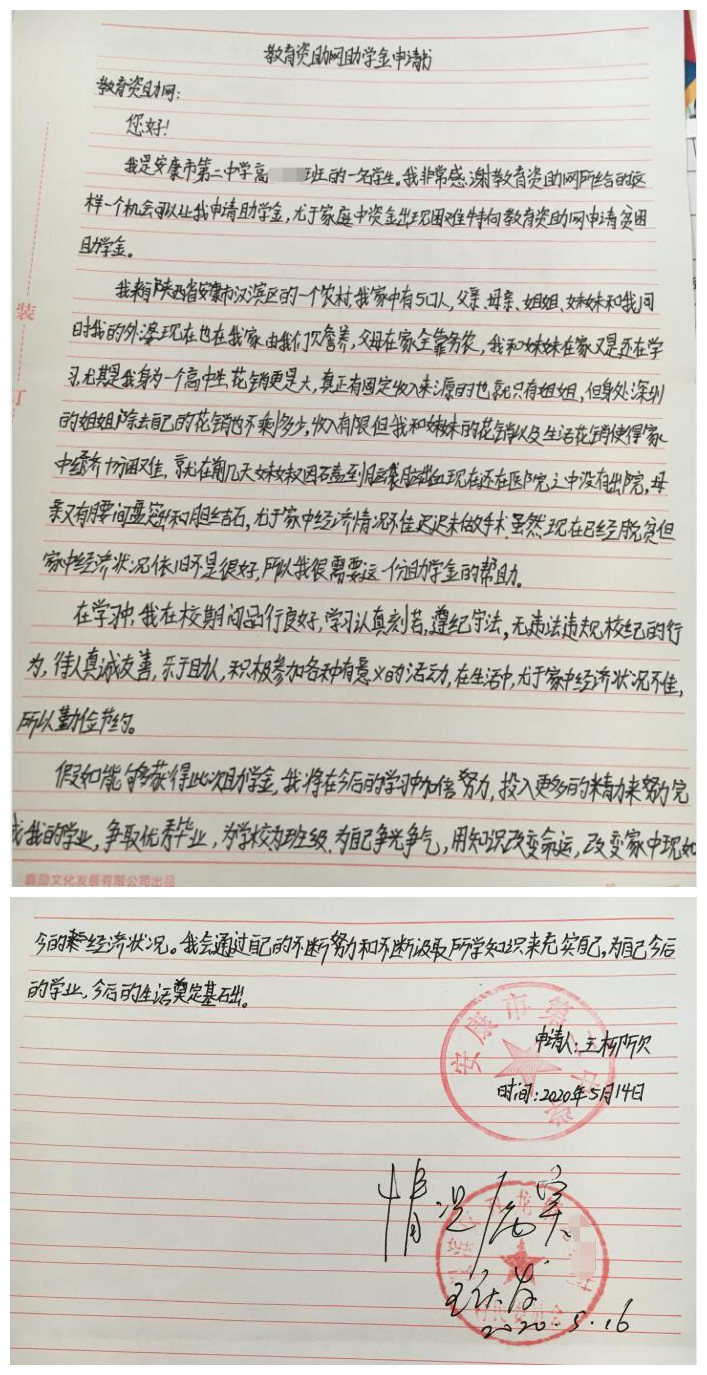 教育资助网助学金申请书
教育资助网:
您好!
我是安康市第二中学高 班的一名学生。我非常感谢教育资助网所给的这
样一个机会可以让我申请助学金,尤于家庭中资金出现困难特向教育资助网申请贫困
助学金。
我来自陕西省安康市汉滨区的一个农村,我家中有5口人,父亲、母亲、姐姐、妹妹和我,同
时我的外婆现在也在我家由我们赡养,父母在家全靠务农,我和妹妹在家又是还在学
习,尤其是我身为一个高中生花销更是大,真正有固定收入来源的也就只有姐姐,但身处深圳
的姐姐除去自己的花销也不剩多少,收入有限但我和妹妹的花销以及生活花销使得家
中经济十分困难,就在前几天妹妹又因 现在还在医院之中没有出院,母
亲又有腰间盘突出和胆结石,尤于家中经济情况不佳迟迟未做手术虽然现在已经脱贫但
家中经济状况依旧不是很好,所以我很需要这一份助学金的帮助。
在学习中,我在校期间品行良好,学习认真刻苦,遵纪守法,无违法违规校纪的行
为,待人真诚友善,乐于助人,积极参加各种有意义的活动,在生活中,尤于家中经济状况不佳,
所以勤俭节约。
假如能够获得此次助学金,我将在今后的学习中加倍努力,投入更多的精力来努力完
成我的学业,争取优秀毕业,为学校为班级、为自己争光争气,用知识改变命运,改变家中现如
装
订
鑫励文化发展有限公司出品
今的经济状况。我会通过自己的不断努力和不断汲取所学知识来充实自己,为自己今后
的学业,今后的生活奠定基石出。
安康市第二中学
申请人:王
时间:2020年5月14日
情况属实
2020.5.16